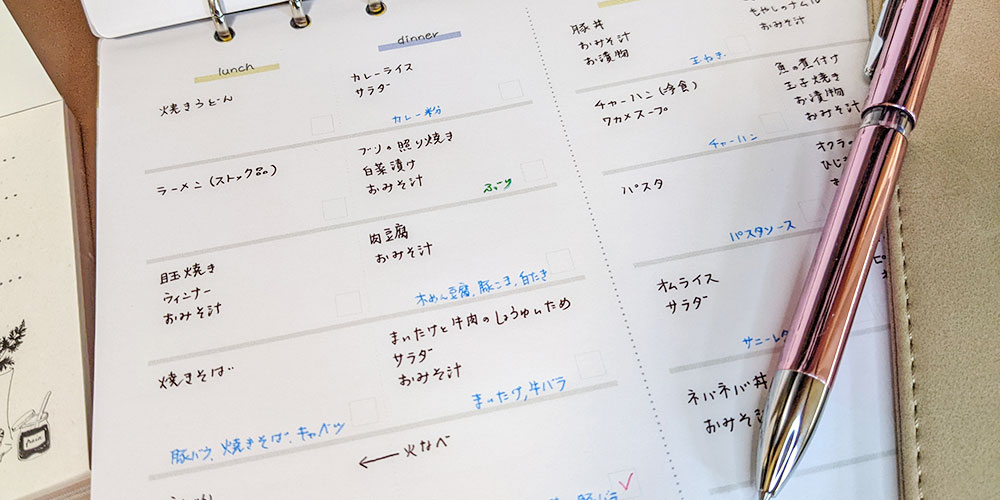 lunch
dinner
焼きうどん
カレーライス
サラダ
カレー粉
ラーメン(ストック品)
ブリの照り焼き
白菜漬け
おみそ汁
ぶり
目玉焼き
ウィンナー
おみそ汁
肉豆腐
おみそ汁
木めん豆腐、豚こま、白たき
焼きそば
まいたけと牛肉のしょうゆいため
サラダ
おみそ汁
豚バラ、焼きそば、キャベツ
まいたけ、牛バラ
← 火なべ
豚丼
おみそ汁
お漬物
もやしのナムル
おみそ汁
玉ねぎ
チャーハン(冷食)
ワカメスープ
魚の煮付け
玉子焼き
お漬物
おみそ汁
チャーハン
パスタ
オクラの
ひじ
パスタソース
オムライス
サラダ
サニーレタ
ネバネバ丼
おみそ